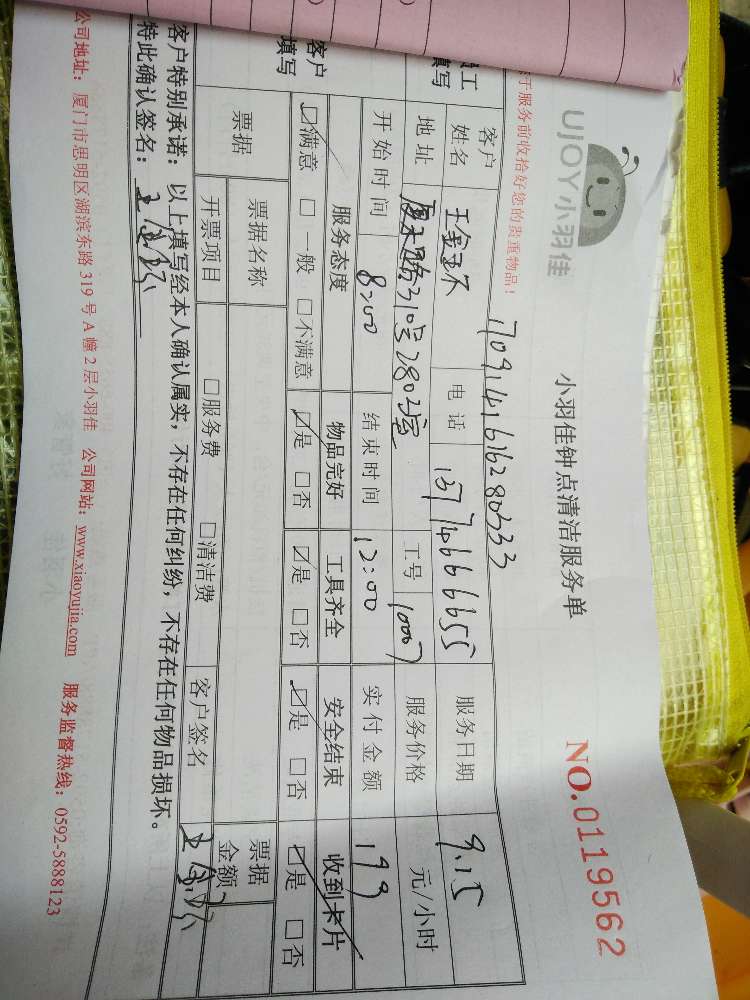 UJOY小羽佳
小羽佳钟点清洁服务单
NO.0119562
于服务前收拾好您的贵重物品！
1709141616280333
客户
姓名
王金环
电话
13774666655
服务日期
9.15
填写
地址
310号2802室
工号
10007
服务价格
元/小时
开始时间
8:00
结束时间
12:00
实付金额
199
客户
填写
服务态度
物品完好
工具齐全
安全结束
收到卡片
☑满意 □一般 □不满意
☑是 □否
☑是 □否
☑是 □否
☑是 □否
票据
票据名称
票据
金额
开票项目
□服务费 □清洁费
客户签名
客户特别承诺：以上填写经本人确认属实，不存在任何纠纷，不存在任何物品损坏。
特此确认签名：
公司地址：厦门市思明区湖滨东路 319 号 A 幢 2 层小羽佳 公司网站：www.xiaoyujia.com 服务监督热线：0592-5888123